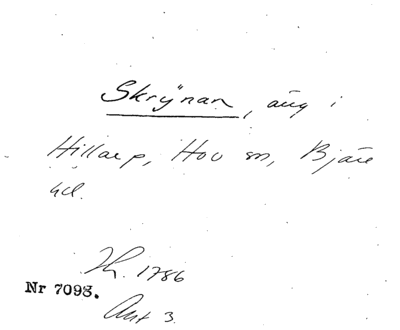 Skrỹnan, äng i
Hillarp, Hov sn, Bjäre
hd.
Th. 1786
Nr 7093.
Akt 3.